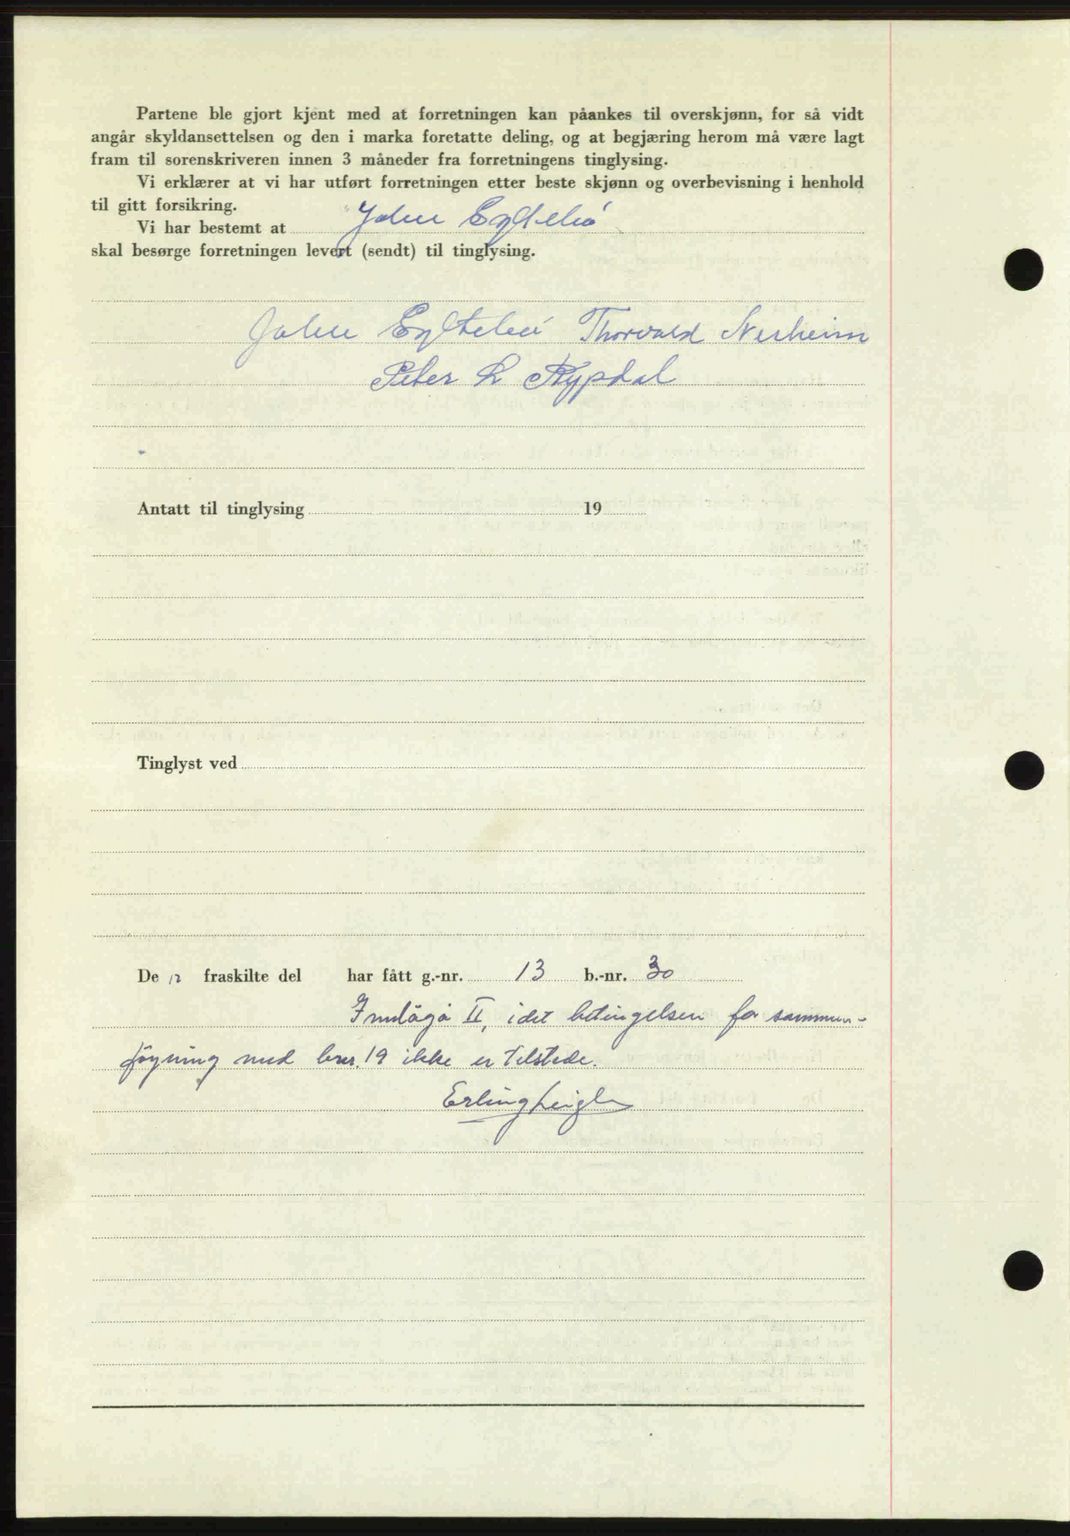 Partene ble gjort kjent med at forretningen kan påankes til overskjønn, for så vidt
angår skyldansettelsen og den i marka foretatte deling, og at begjæring herom må være lagt
fram til sorenskriveren innen 3 måneder fra forretningens tinglysing.
Vi erklærer at vi har utført forretningen etter beste skjønn og overbevisning i henhold
til gitt forsikring.
Vi har bestemt at
skal besørge forretningen levert (sendt) til tinglysing.
Thorvald Nerheim
Peter L Rypdal
Antatt til tinglysing 19
Tinglyst ved
De n fraskilte del har fått g.-nr. 13 b.-nr. 30
II, idet betingelsen for sammen-
føyning med brnr. 19 ikke er tilstede.
Erling